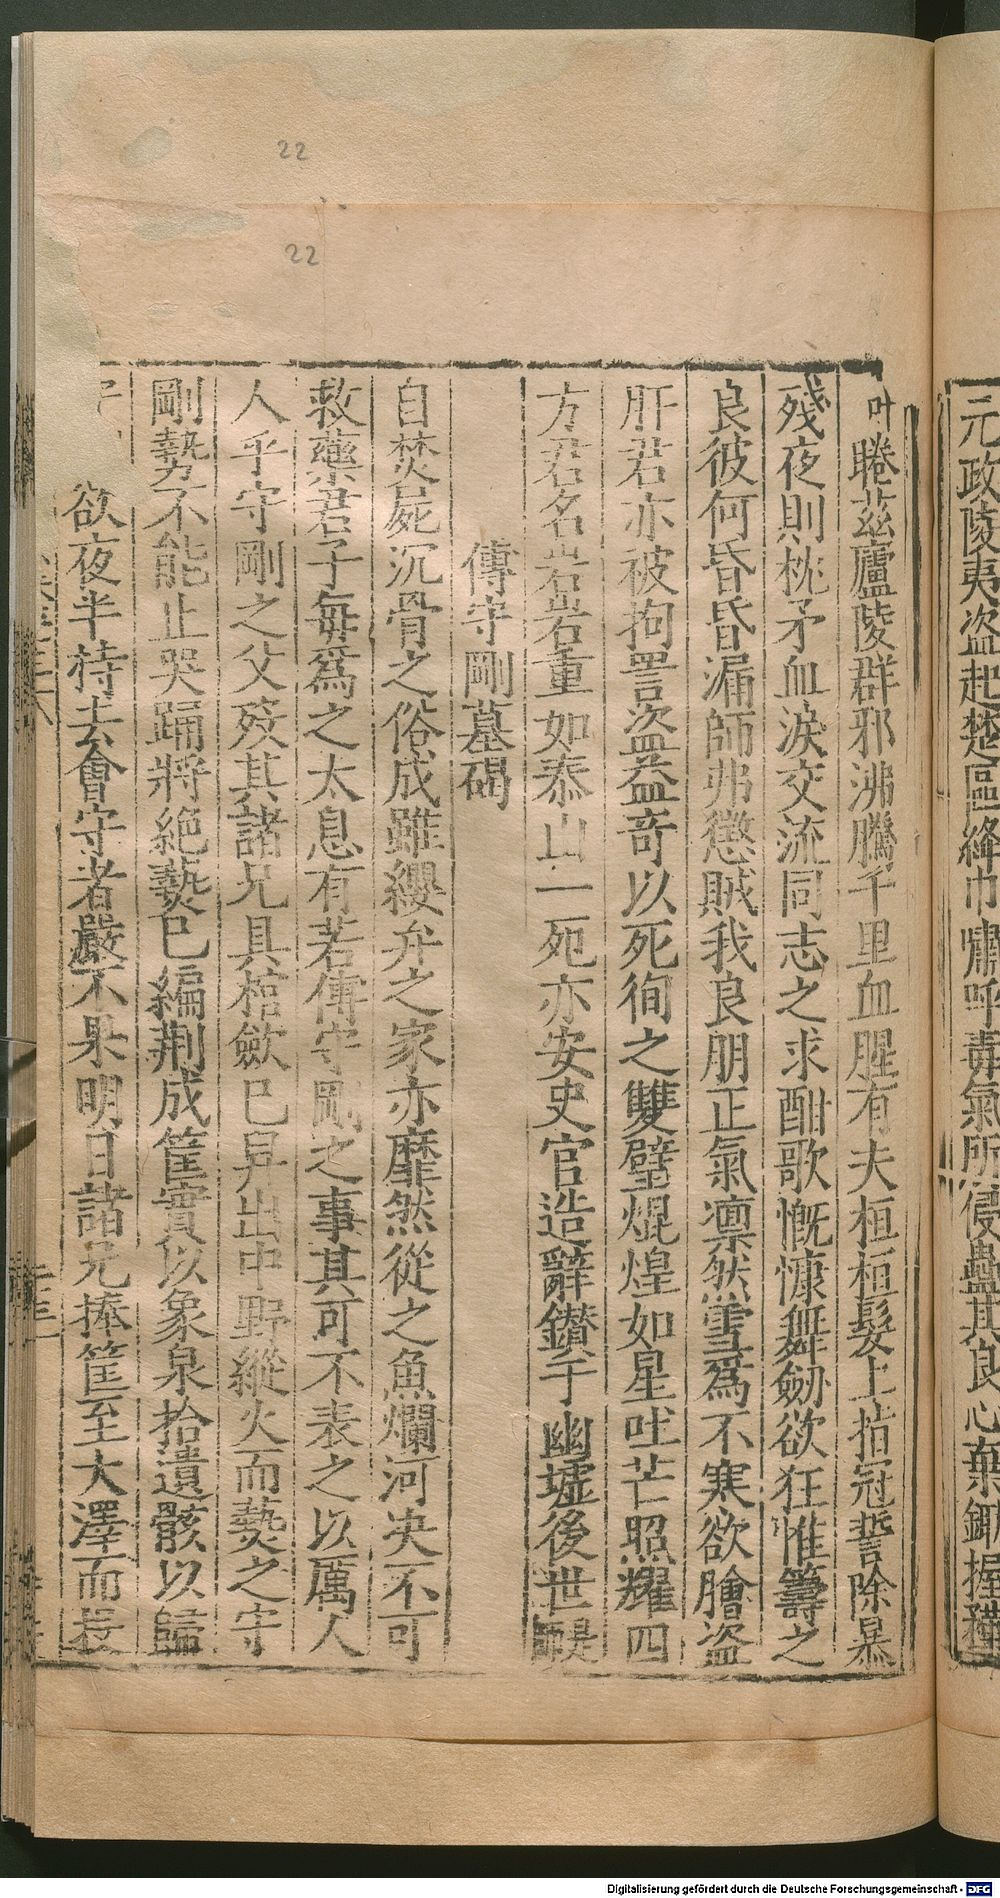 元政陵夷盗起楚區絳巾嘯呼毒氣所侵蠱其良心棄鋤握
睠茲廬陵群邪沸騰千里血腥有夫桓桓髮上指冠誓除暴
殘夜則枕矛血淚交流同志之求酣歌慨慷舞劒欲狂惟籌之
良彼何昏昏漏師弗懲賊我良朋正氣凛然雪為不寒欲膾盗
肝君亦被拘詈盗益奇以死徇之雙璧焜煌如星吐芒照耀四
方君名岩岩重如泰山一死亦安史官造辭鑚于幽墟後世視
傳守剛墓碣
自焚屍沉骨之俗成雖纓弁之家亦靡然從之魚爛河决不可
救藥君子每為之太息有若傳守剛之事其可不表之以厲人
人乎守剛之父歿其諸兄具棺斂已舁出中野縱火而爇之守
剛勢不能止哭踊將絶爇已編荆成筐實以象泉拾遺骸以歸
欲夜半持去會守者嚴不果明日諸兄捧筐至大澤而
22
22
Digitalisierung gefördert durch die Deutsche Forschungsgemeinschaft - DFG